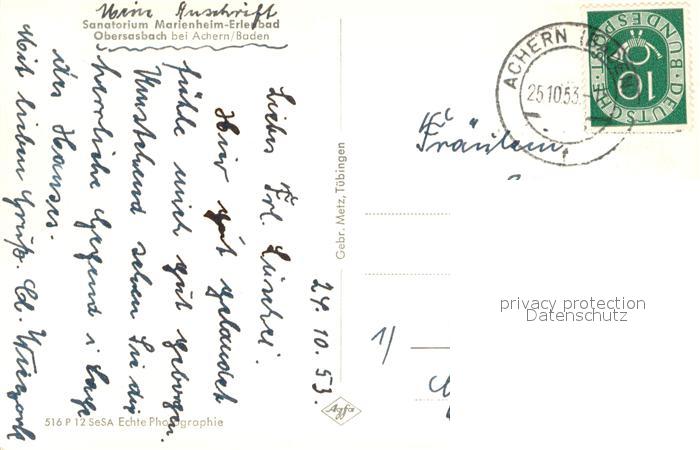 Meine Anschrift
Sanatorium Marienheim-Erlenbad
Obersasbach bei Achern/Baden
24. 10. 53.
Liebes Frl.
Hier gut gelandet
fühle mich gut geborgen.
Umstehend sehen Sie die
herrliche Gegend i. Lage
des Hauses.
Mit lieben Grüß.
516 P 12 SeSA Echte Photographie
Gebr. Metz, Tübingen
Agfa
ACHERN (BADEN)
25.10.53.
DEUTSCHE BUNDESPOST
10
Fräulein
1/
privacy protection
Datenschutz